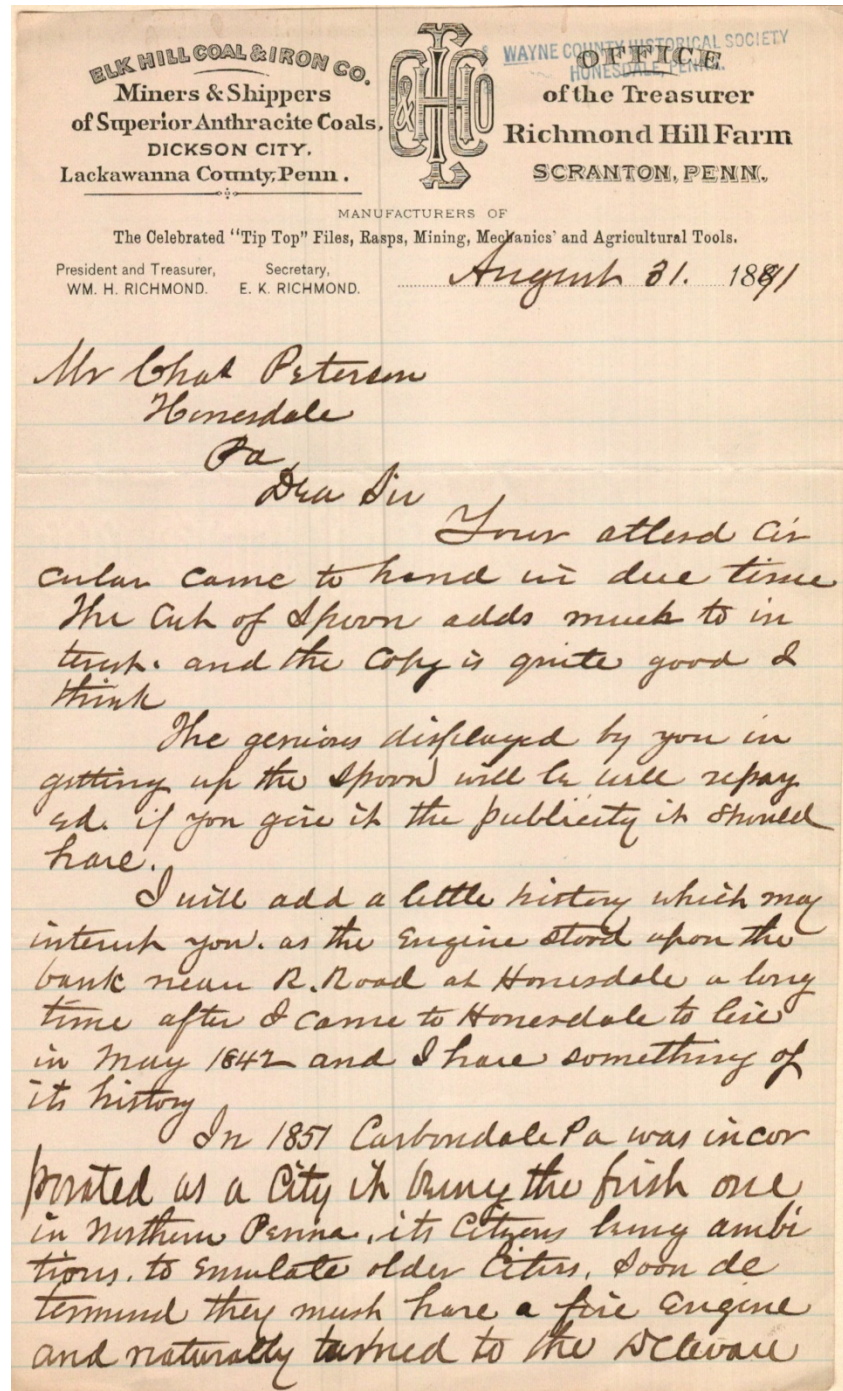 ELK HILL COAL & IRON CO.
Miners & Shippers
of Superior Anthracite Coals,
DICKSON CITY,
Lackawanna County, Penn.
WAYNE COUNTY HISTORICAL SOCIETY
HONESDALE, PENN.
OFFICE
of the Treasurer
Richmond Hill Farm
SCRANTON, PENN.,
MANUFACTURERS OF
The Celebrated "Tip Top" Files, Rasps, Mining, Mechanics' and Agricultural Tools.
President and Treasurer,
WM. H. RICHMOND.
Secretary,
E. K. RICHMOND.
August 31. 1891
Mr Chas Peterson
Honesdale
Pa
Dear Sir
Your Cir
cular came to hand in due time
The Cut of Spoon adds much to in
terest. and the Copy is quite good I
think
The genious displayed by you in
getting up the Spoon will be well repay
ed. if you give it the publicity it should
have.
I will add a little history which may
interest you. as the Engine stood upon the
bank near R. Road at Honesdale a long
time after I came to Honesdale to live
in May 1842 and I have something of
its history
In 1851 Carbondale Pa was incor
porated as a City it being the first one
in Northern Penna., its Citizens being ambi
tious. to Emulate older Cities. Soon de
termind they must have a fire Engine
and naturally turned to the Delaware